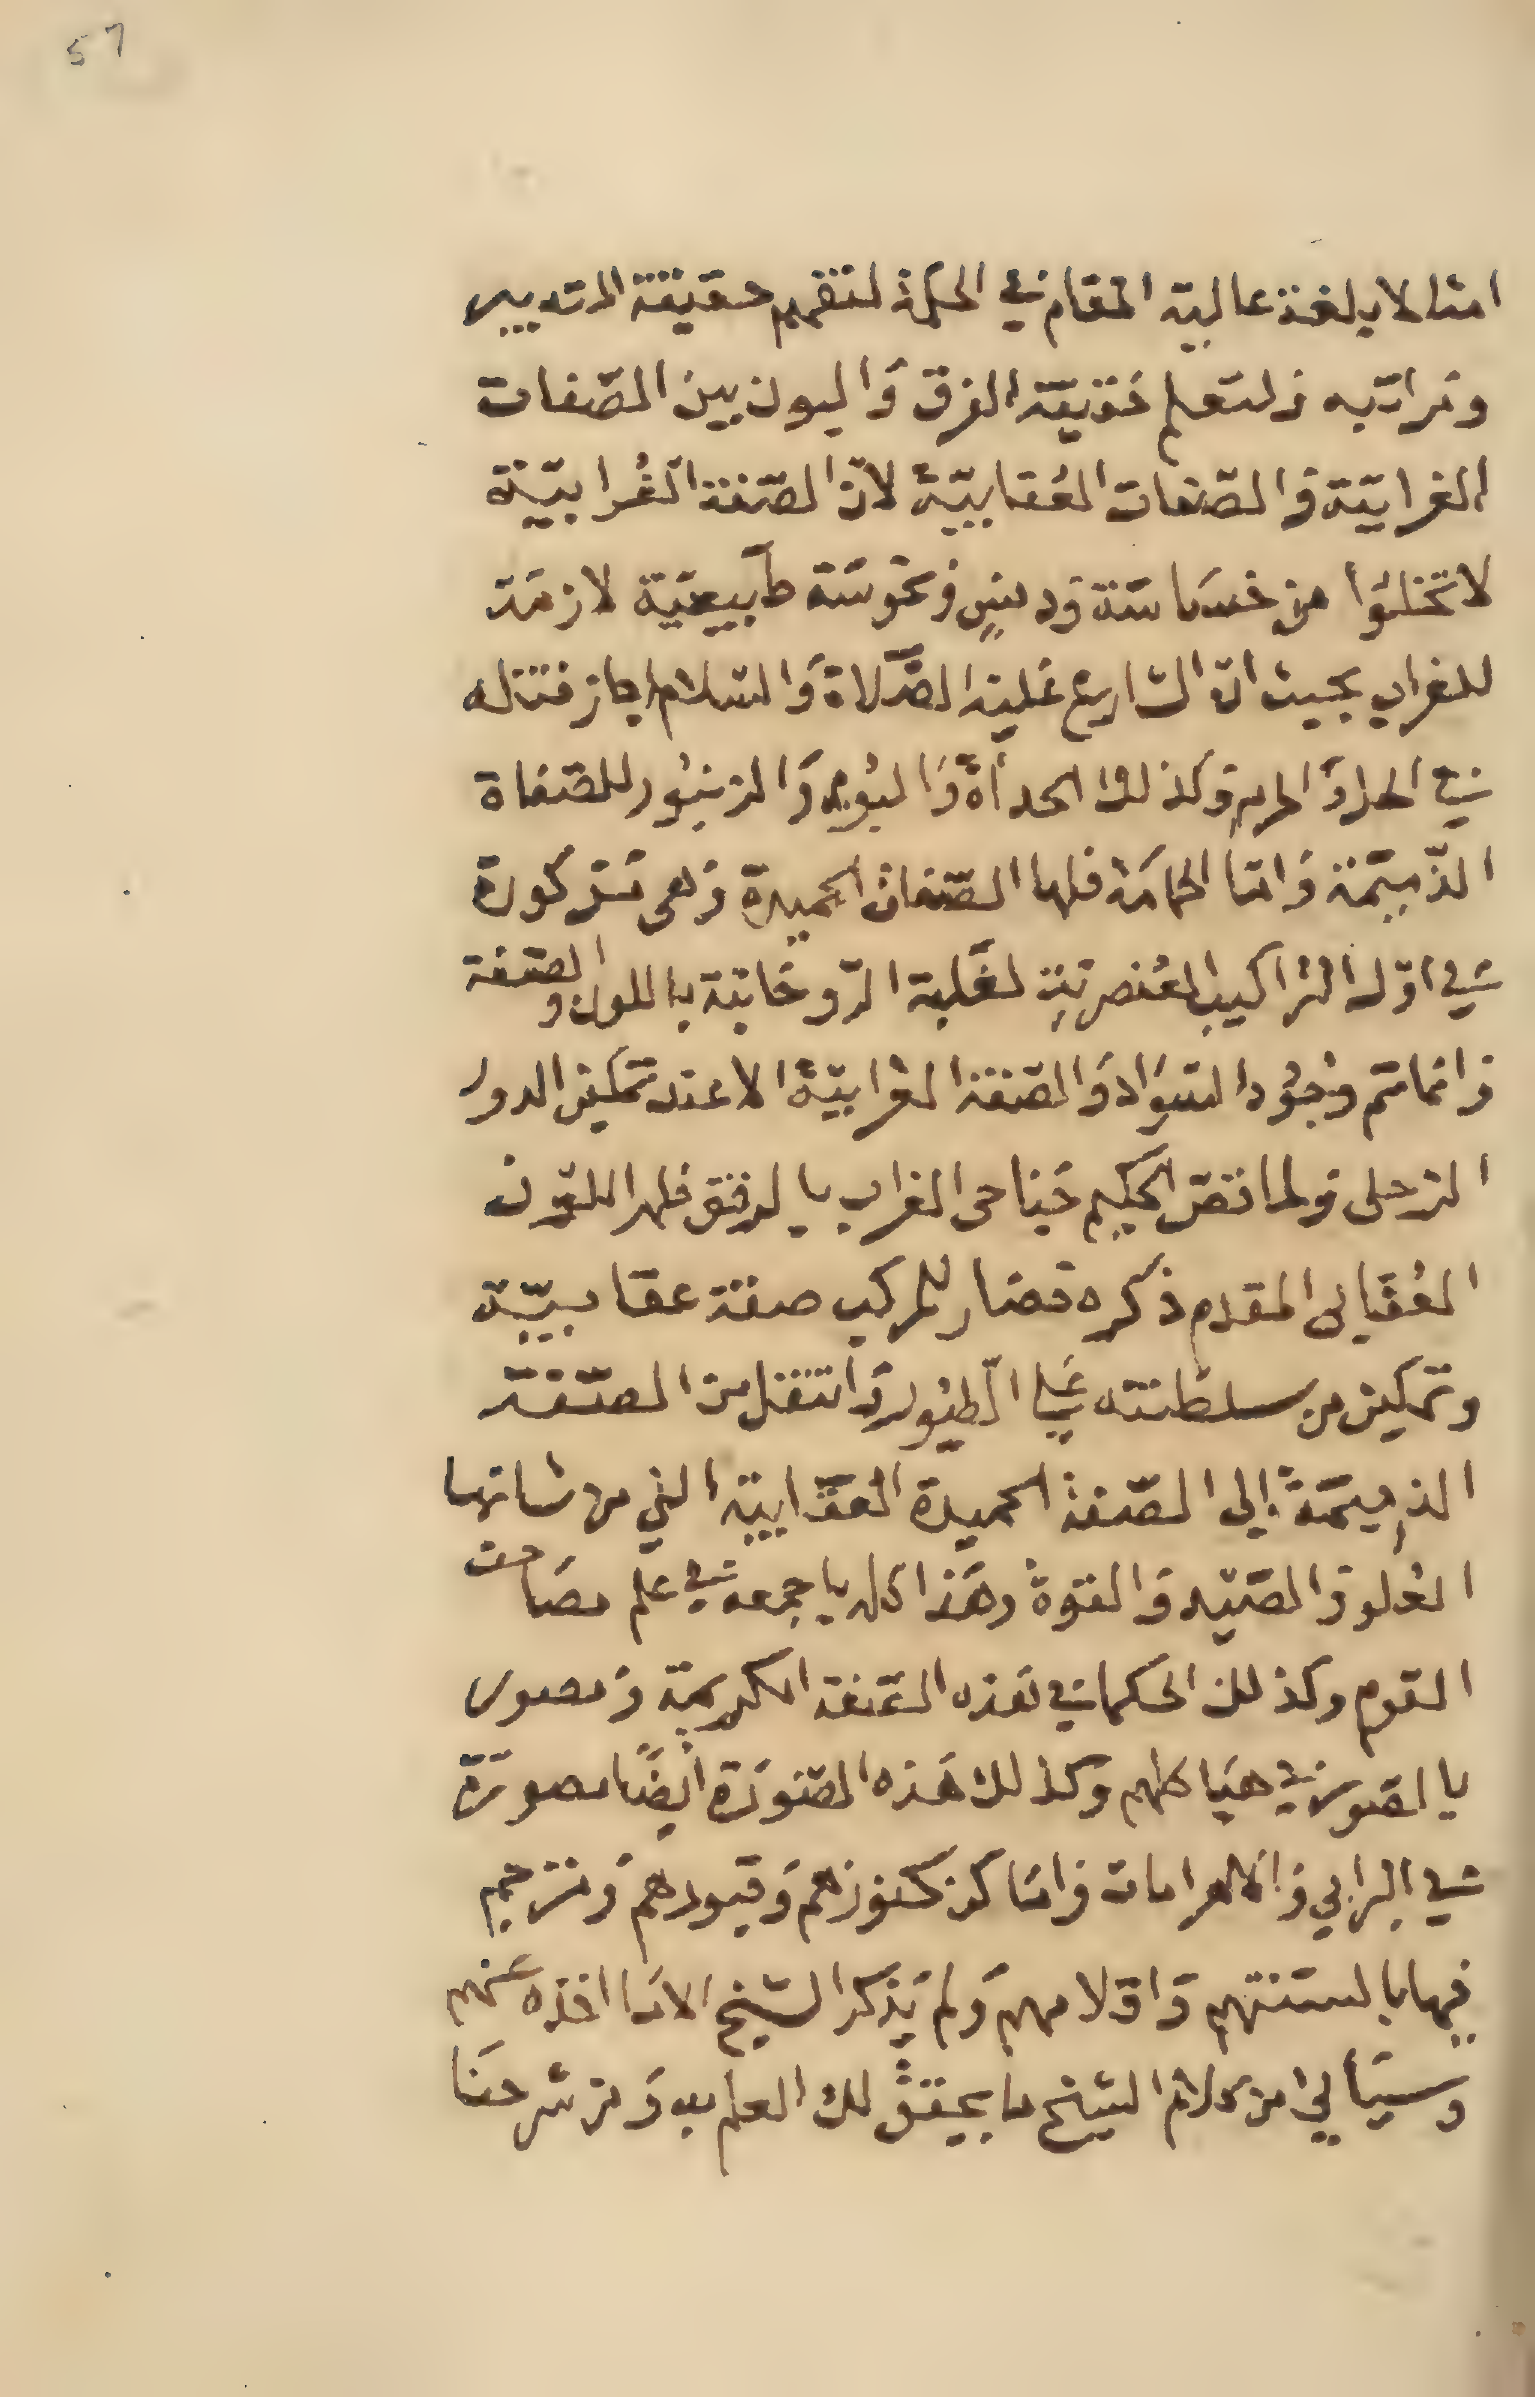 57
امثالا بلغة عالية المقام في الحكمة لتفهم حقيقة التدبير
ومراتبه ولتعلم حقيقة الفرق وَالبون بين الصّفات
الغرابيّة وَالصّفات العُقابيّة لانّ الصّفة الغُرابيّة
لا تخلُوا من خسَاسَة ودنسٍ ونحُوسَة طَبيعيّة لازمَة
للغراب بحيث انّ الشارع عَليه الصَّلاة وَالسّلام اجاز قتله
في الحل وَالحرم وَكذلك الحدأة وَالبُوم وَالزنبُور للصّفاة
الذّميمَة وَامّا الحمامَة فلها الصّفات الحميدة وَهى مَذكورة
في اوّل التراكيب العُنصريّة لغَلبة الرّوحَانيّة باللون والصّفة
وَانما تم وجُود السّوَاد وَالصّفة الغرابيّة الا عند تمكين الدور
الزحلى ولما قصّ الحكيم جَناحى الغراب بالرفق ظهر اللّون
العُقَابى المقدم ذكره فصَار للمركب صفة عقابيّة
وتمكين من سلطنته عَلى الطيُور وَانتقل من الصّفة
الذميمَة إلى الصّفة الحميدة العقابية التي من شانها
العُلو وَالصّيد وَالقوة وهَذا كله باجمعه في علم مصَاحف
القوم وكذلك الحكما في هَذه الصّفة الكريمَة وَمصور
بالصّور في هيَاكلهم وكذلك هَذه الصّورَة ايضًا مصورَة
في البرابي وَالاهرامات وَامَاكن كنوزهم وَقبورهم وَمترجم
فيها بالسنتهم وَاقلامهم وَلم يَذكر الشّيخ الا مَا اخذه عنهم
وسيَاتي من كلام الشيخ ما يحقق لك العلم به وَمن شرحنَا